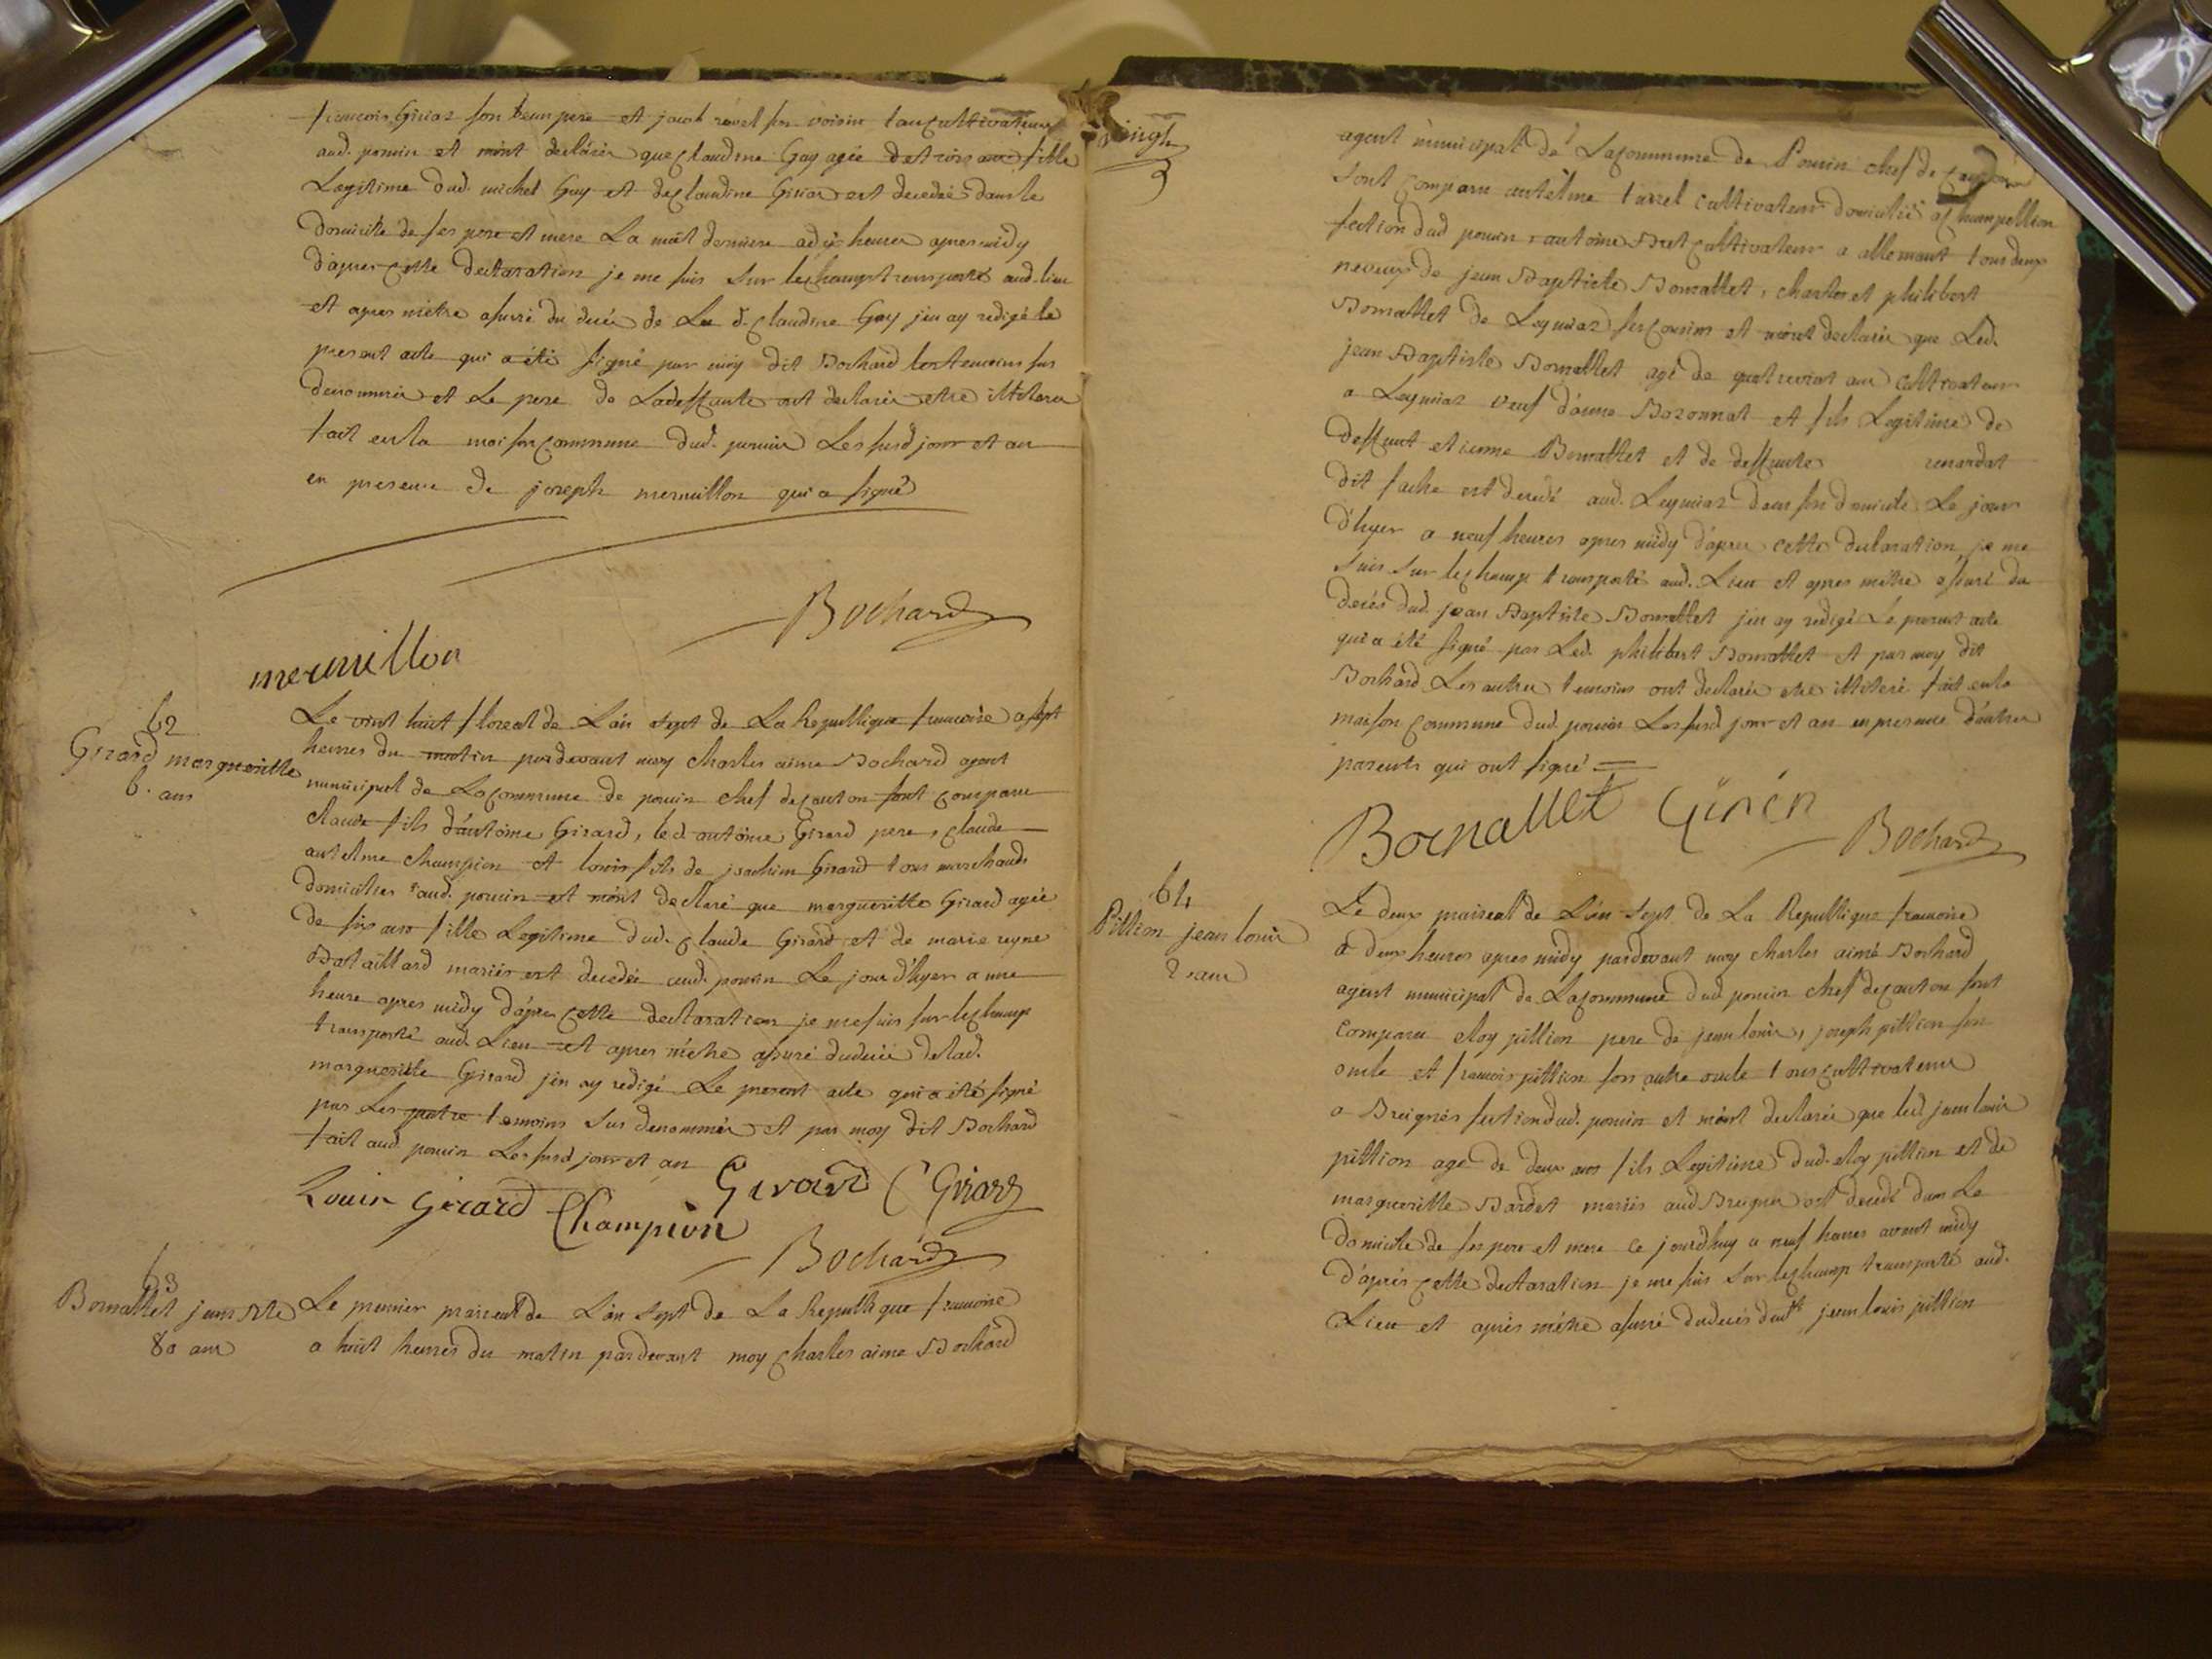 francois Giriaz son beaupere et jacob ravel son voisin tous cultivateurs
aud. poncin et m'ont déclaré que claudine Gay agée de trois ans fille
Legitime dud. michel Gay et de claudine Giriaz est decedée dans le
domicile de ses pere et mere La nuit derniere a dix heures apres midy
d'après cette declaration je me suis sur le champ transporté aud. lieu
et apres m'être assuré du decés de La d. claudine Gay j'en ay redigé le
present acte qui a été signé par moy dit Bochard les temoins sus
denommés et Le pere de La deffunte ont declarés etre illitéré
fait en la maison commune dud. poncin Les susd jour et an
en presence de joseph mermillon qui a signé
Bochard
mermillon
62
Girard margueritte
6. ans
Le vint huit floreal de L'an sept de La Republique francoise a sept
heures du matin pardevant moy charles aime Bochard agent
municipal de La commune de poncin chef de canton sont comparu
claude fils d'antoine Girard, led antoine Girard pere, claude
antelme champion et louis fils de joachim Girard tous marchands
domicilies aud. poncin et m'ont declaré que margueritte Girard agée
de six ans fille Legitime dud. claude Girard et de marie reyne
Bataillard mariés est decedée aud. poncin Le jour d'hyer a une
heure apres midy d'après cette declaration je me suis sur le champ
transporté aud. Lieu et apres m'être assuré du decés de lad.
margueritte Girard j'en ay redigé Le present acte qui a été signé
par Les quatre temoins sus denommés et par moy dit Bochard
fait aud. poncin Les susd jour et an
Girard C Girard
Louis Girard Champion
Bochard
63
Bornattet jean Bte
80 ans
Le premier prairial de L'an sept de La Republique francoise
a huit heures du matin pardevant moy charles aime Bochard
vingt
agent municipal de La commune de Poncin chef de canton
sont comparu antelme tarrel cultivateur domicilié a champeillon
section dud poncin, antoine cultivateur a allemant tous deux
neveux de jean Baptiste Bornattet, charles et philibert
Bornattet de Leymiaz ses cousins et m'ont declaré que Led.
jean Baptiste Bornattet agé de quatrevint ans cultivateur
a Leymiaz veuf d'anne Bozonnat et fils Legitime de
deffunt etienne Bornattet et de deffunte renardat
dit est decedé aud. Leymiaz dans son domicile Le jour
d'hyer a neuf heures apres midy d'après cette declaration je me
suis sur le champ transporté aud. Lieu et apres m'être assuré du
decés dud. jean Baptiste Bornattet j'en ay redigé Le present acte
qui a été signé par Led. philibert Bornattet et par moy dit
Bochard Les autres temoins ont declarés etre illitéré fait en la
maison commune dud. poncin Les susd jour et an en presence d'autres
parents qui ont signé
Bornattet Girin
Bochard
64
Pittion jean louis
2 ans
Le deux prairial de L'an sept de La Republique francoise
a deux heures apres midy pardevant moy charles aimé Bochard
agent municipal de La commune dud poncin chef de canton sont
comparu eloy pittion pere de jean louis, joseph pittion son
oncle et francois pittion son autre oncle tous cultivateurs
a Breignes section dud. poncin et m'ont declarés que led. jean louis
pittion agé de deux ans fils Legitime dud. eloy pittion et de
margueritte Bardet mariés aud Breignes est decedé dans Le
domicile de ses pere et mere ce jourdhuy a neuf heures avant midy
d'après cette declaration je me suis sur le champ transporté aud.
Lieu et après m'être assuré du decés dudt jean louis pittion